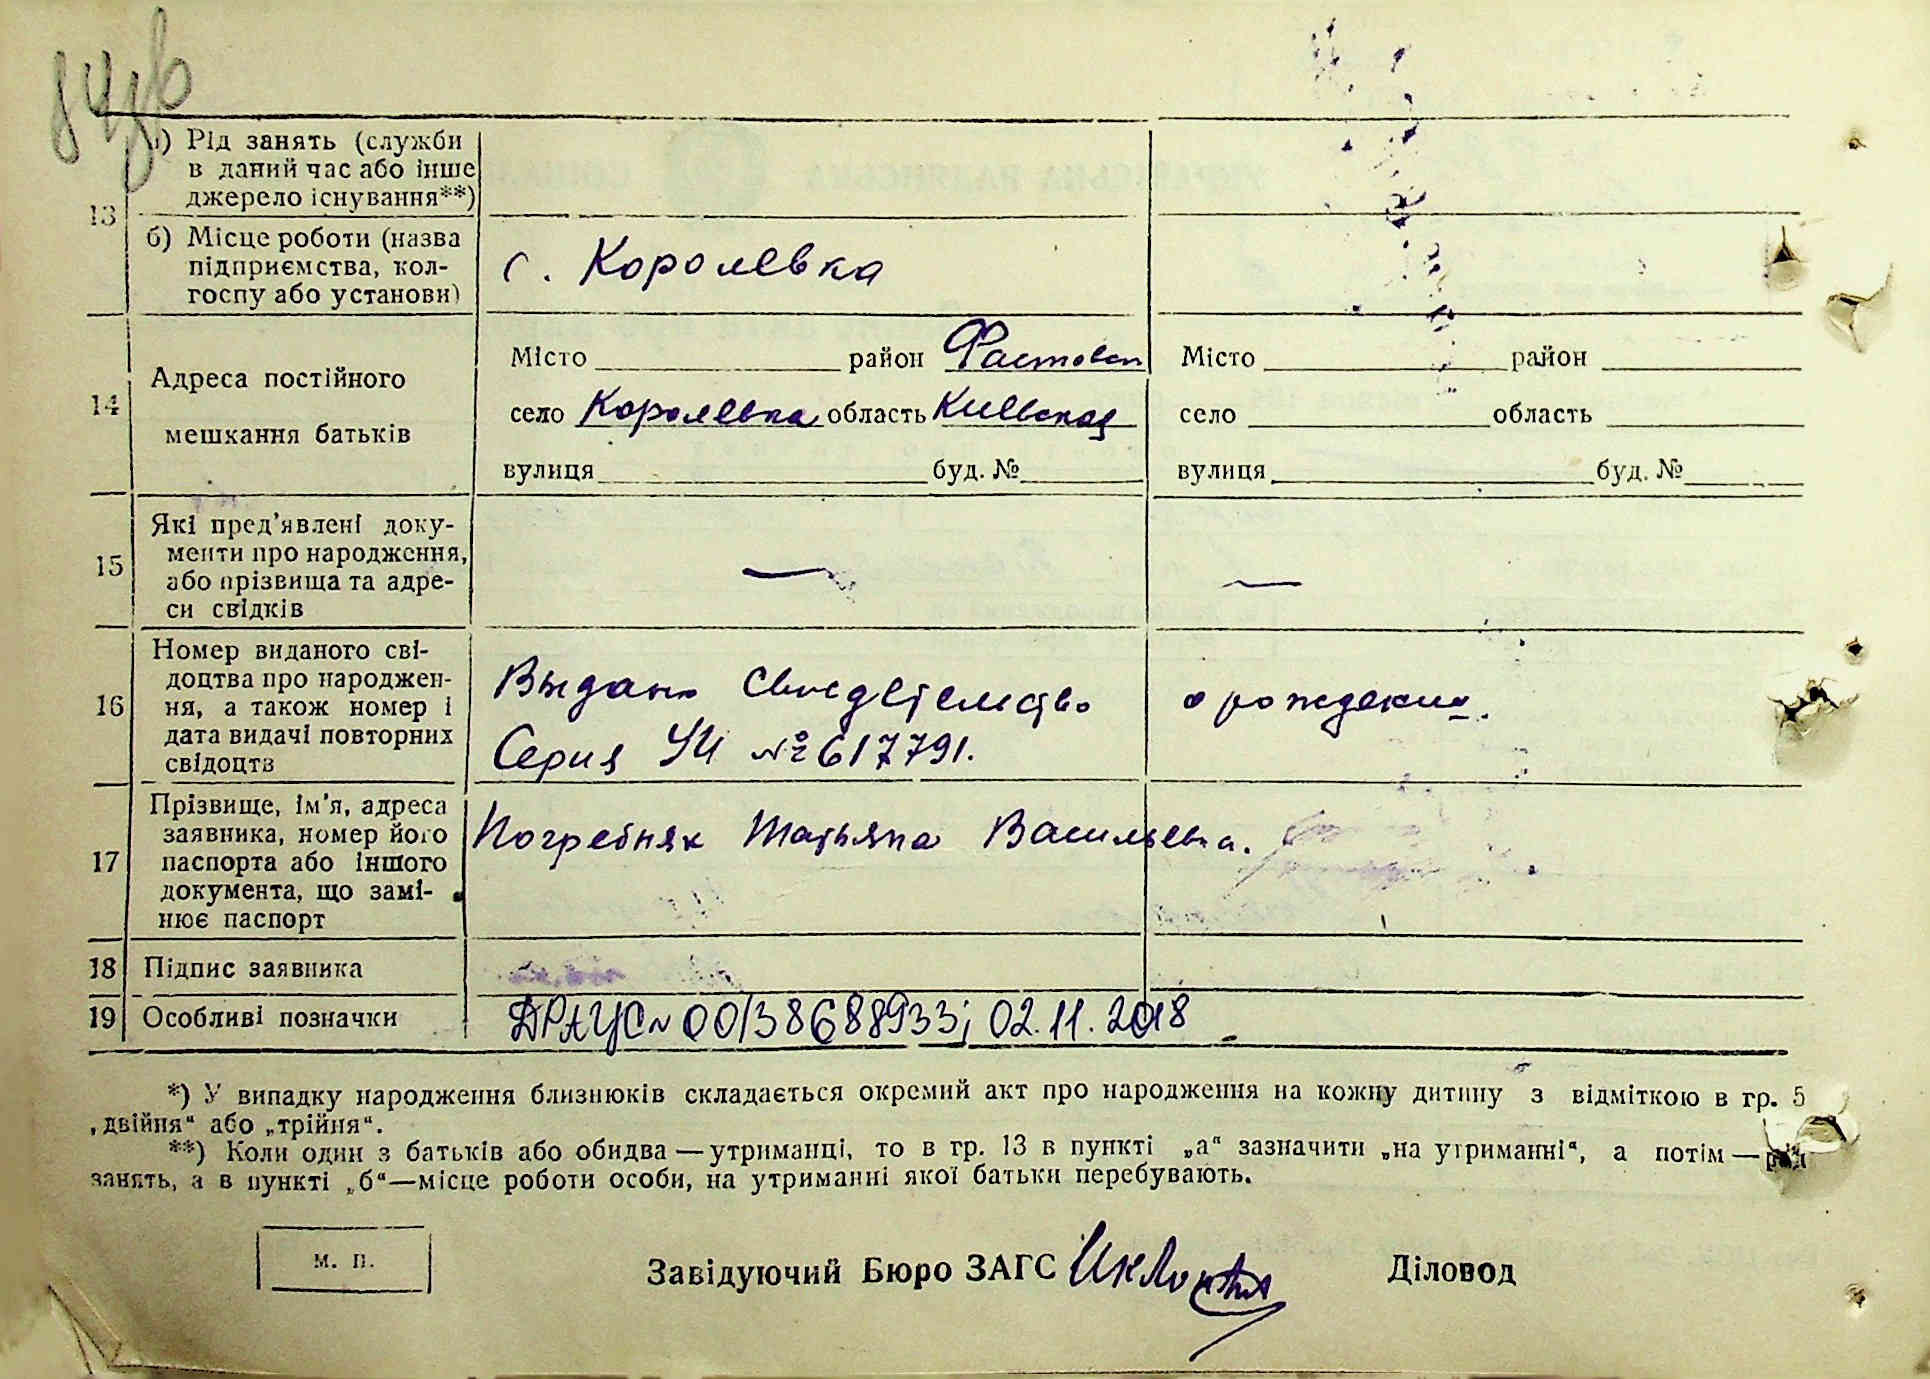 13 а) Рід занять (служби
в даний час або інше
джерело існування**)
б) Місце роботи (назва
підприємства, кол-
госпу або установи)
с. Королевка
14 Адреса постійного
мешкання батьків
Місто район Фастовск
село Королевка область Киевская
вулиця буд. №
Місто район
село область
вулиця буд. №
15 Які пред'явлені доку-
менти про народження,
або прізвища та адре-
си свідків
—
—
16 Номер виданого сві-
доцтва про народжен-
ня, а також номер і
дата видачі повторних
свідоцтв
Выдано Свидетельство о рождении.
Серия УИ №617791.
17 Прізвище, ім'я, адреса
заявника, номер його
паспорта або іншого
документа, що замі-
нює паспорт
Погребняк Татьяна Васильевна.
18 Підпис заявника
19 Особливі позначки
ДРАЦС № 00138688933; 02.11.2018
*) У випадку народження близнюків складається окремий акт про народження на кожну дитину з відміткою в гр. 5
„двійня“ або „трійня“.
**) Коли один з батьків або обидва — утриманці, то в гр. 13 в пункті „а“ зазначити „на утриманні“, а потім — рід
занять, а в пункті „б“—місце роботи особи, на утриманні якої батьки перебувають.
м. п.
Завідуючий Бюро ЗАГС
Діловод